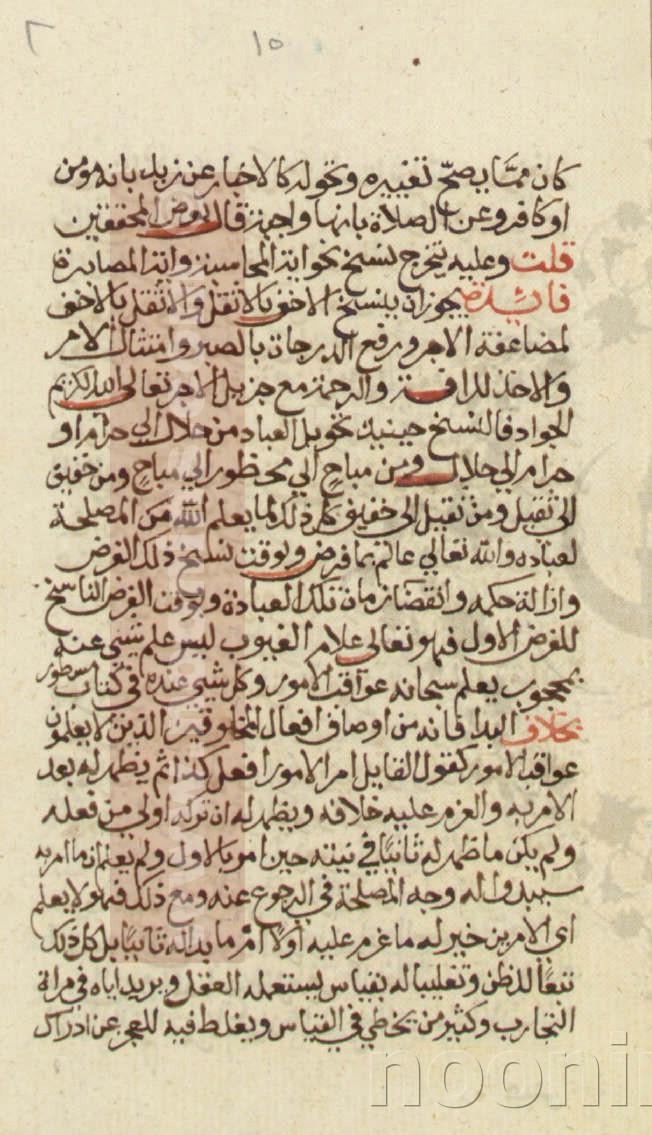 ١٥
كان مما يصح تغييره وتحوله كالاخبار عن زيد بانه مومن
او كافر وعن الصلاة بانها واجبة قال بعض المحققين
قلت وعليه يتخرج نسخ نحو اية المحاسبة واية المصابرة
فايدة يجوز ان ينسخ الاخف بالاثقل والاثقل بالاخف
لمضاعفة الاجر ورفع الدرجات بالصبر وامتثال الامر
والاخذ للرافة والرحمة مع جزيل الاجر تعالى الله الكريم
الجواد فالنسخ حينيذ تحويل العباد من حلال الي حرام او
حرام الي حلال ومن مباح الي محظور الي مباح ومن خفيف
الى ثقيل ومن ثقيل الى خفيف كل ذلك لما يعلم الله من المصلحة
لعباده والله تعالي عالم بما فرض وبوقت نسخ ذلك الفرض
وازالة حكمه وانقضا زمان تلك العبادة وبوقت الفرض الناسخ
للفرض الاول فهو تعالى علام الغيوب ليس علم شي عنه
بمحجوب يعلم سبحانه عواقب الامور وكل شي عنده في كتاب مسطور
بخلاف البدا فانه من اوصاف افعال المخلوقين الذين لا يعلمون
عواقب الامور كقول القايل امر الامور افعل كذا ثم يظهر له بعد
الامر به والعزم عليه خلافه ويظهر له ان تركه اولي من فعله
ولم يكن ما ظهر له ثانيا في نيته حين امر بالاول ولم يعلم ان ما امر به
سيبدوا له وجه المصلحة في الرجوع عنه ومع ذلك فهو لا يعلم
اي الامرين خير له ما عزم عليه اولا ام ما بدا له ثانيا بل كل ذلك
تبعا للظن وتغليبا له بقياس يستعمله العقل ويريد اياه في مراة
التجارب وكثير من يخطي في القياس ويغلط فيه للعجز عن ادراك
noonin